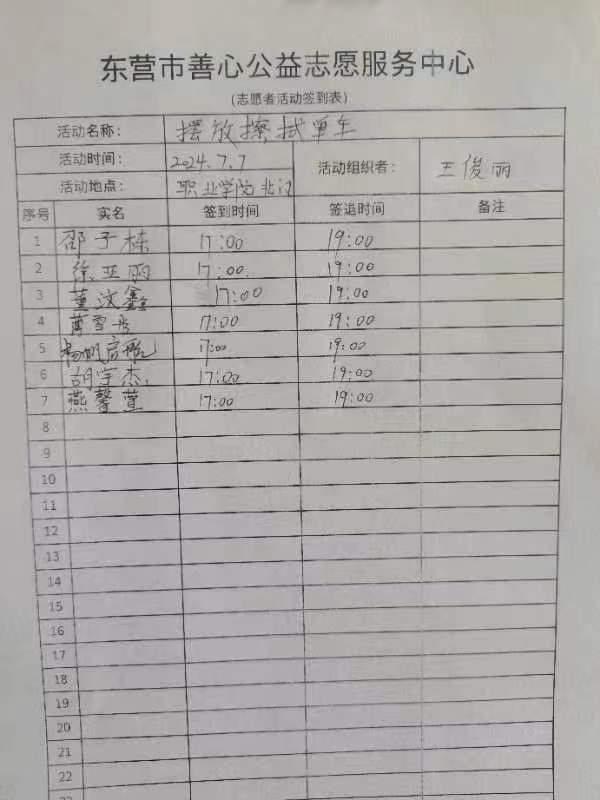 东营市善心公益志愿服务中心
(志愿者活动签到表)
活动名称： 摆放擦拭单车
活动时间： 2024.7.7 活动组织者： 王俊丽
活动地点： 职业学院北门
序号 实名 签到时间 签退时间 备注
1 邵子栋 17:00 19:00
2 徐亚丽 17:00 19:00
3 董汶鑫 17:00 19:00
4 17:00 19:00
5 17:00 19:00
6 胡宇杰 17:00 19:00
7 燕馨萱 17:00 19:00
8
9
10
11
12
13
14
15
16
17
18
19
20
21
22
23